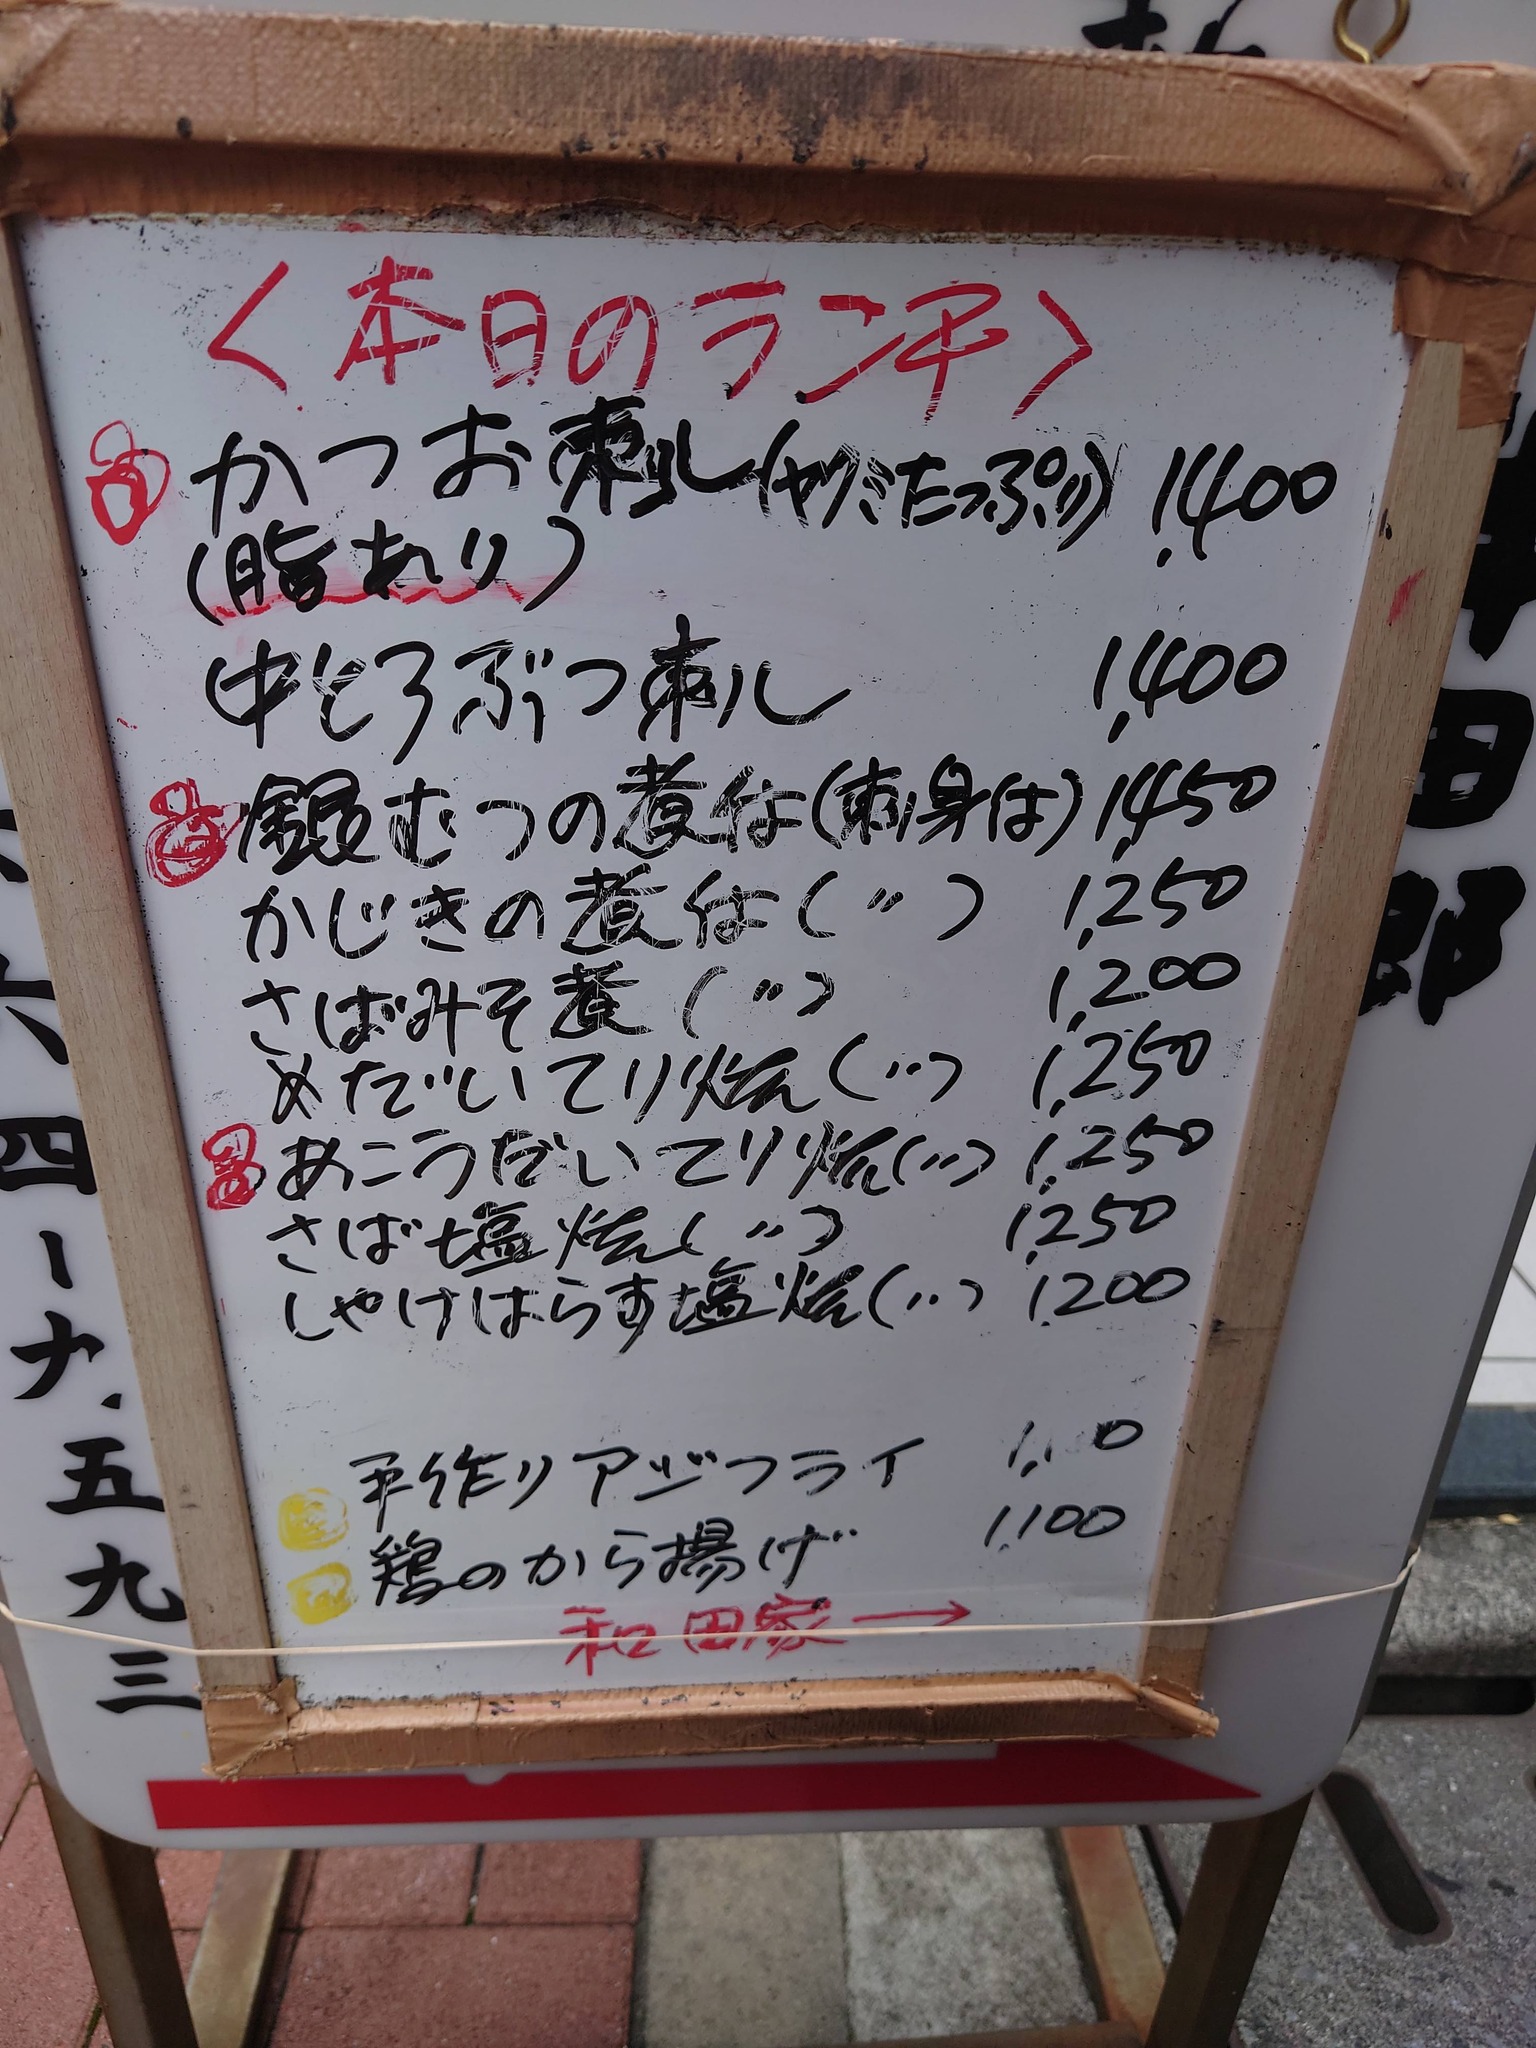 <本日のランチ>
かつお刺し(ヤクミたっぷり) 1,400
(脂あり)
中とろぶつ刺し 1,400
銀むつの煮付(刺身は) 1,450
かじきの煮付(〃) 1,250
さばみそ煮(〃) 1,200
めだいてり焼(〃) 1,250
あこうだいてり焼(〃) 1,250
さば塩焼(〃) 1,250
しゃけはらす塩焼(〃) 1,200
手作りアジフライ
鶏のから揚げ 1,100
和田家→
田郎
六四一九
五九三